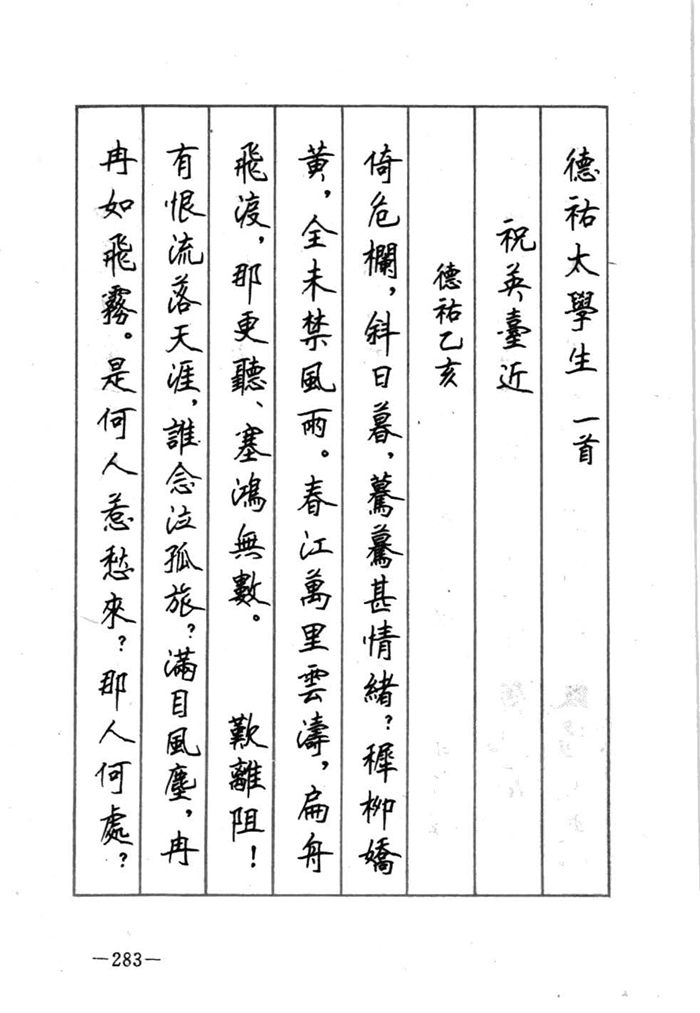 德祐太學生 一首
祝英臺近
德祐乙亥
倚危欄，斜日暮，驀驀甚情緒？穉柳嬌
黃，全未禁風雨。春江萬里雲濤，扁舟
飛渡，那更聽、塞鴻無數。 歎離阻！
有恨流落天涯，誰念泣孤旅？滿目風塵，冉
冉如飛霧。是何人惹愁來？那人何處？
—283—